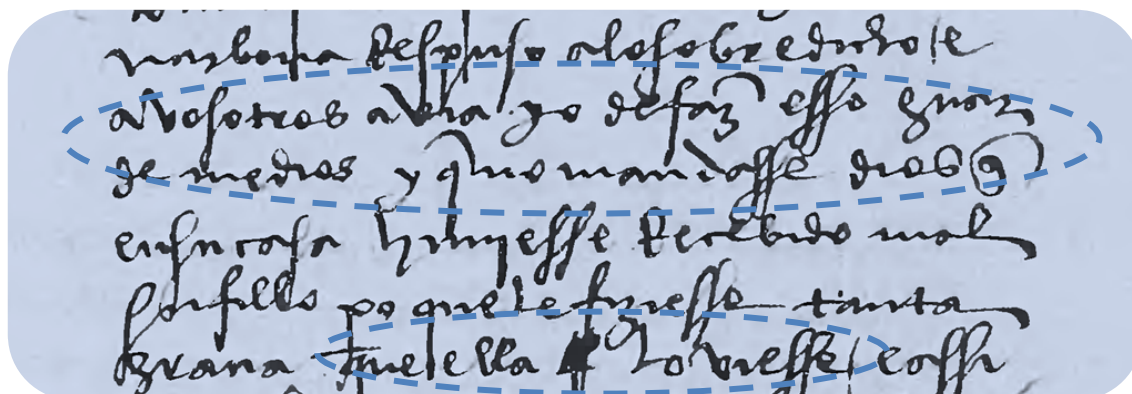 narbona Respuso alosobredicho / e
a vosotros avria yo defaz esso guar
de me dios y q̃ no mandasse dios q̃
en su casa huuiesse Recebido mal
su fillo po que le fuesse tanta
grana que ella lo viesse / e assi